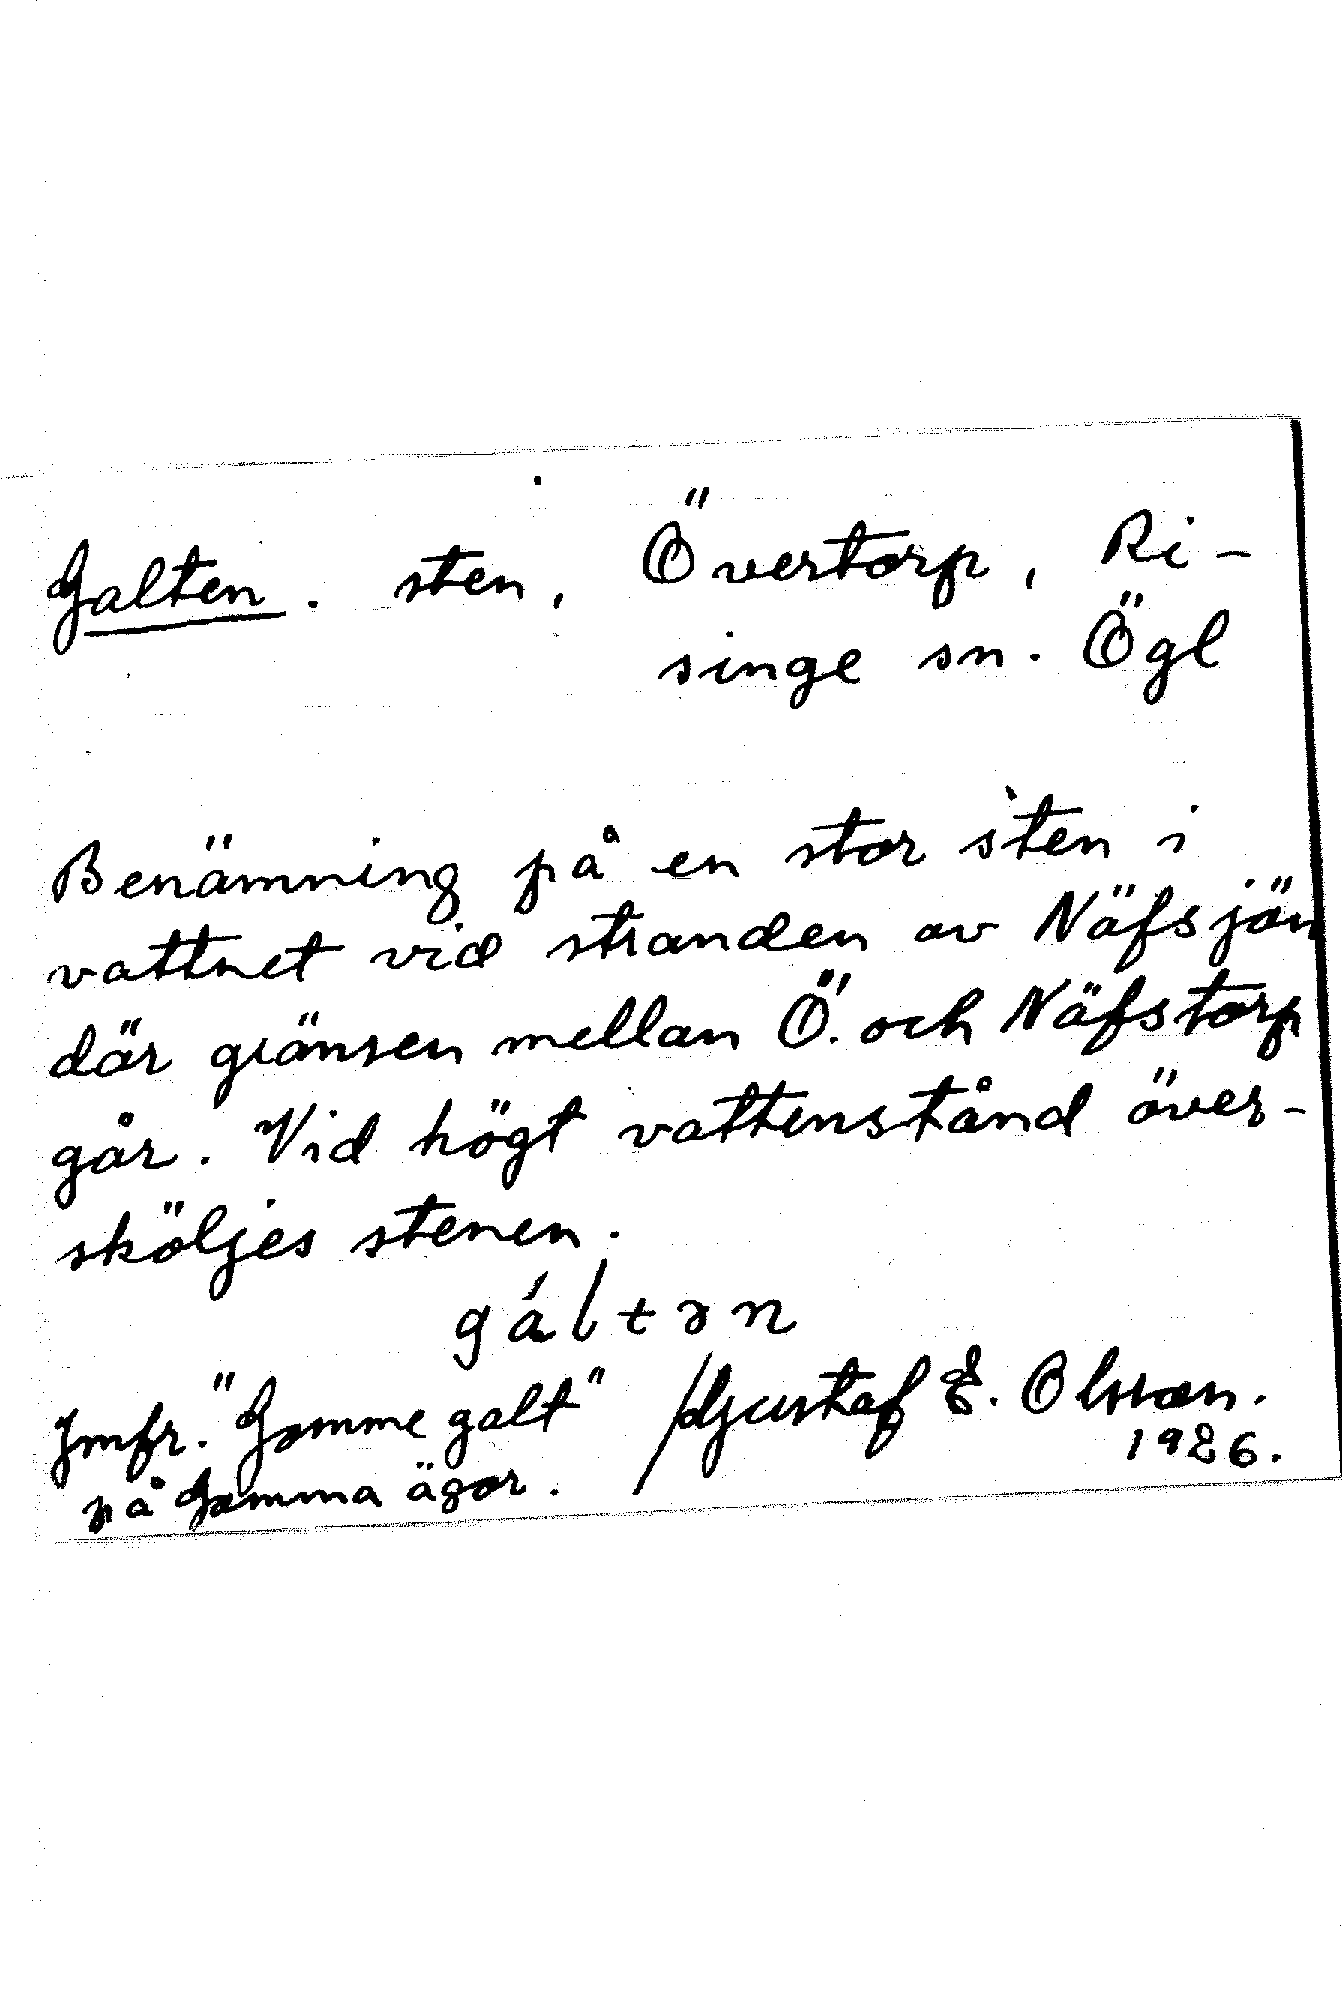 Galten. sten, Övertorp, Ri-
singe sn. Ögl
Benämning på en stor sten i
vattnet vid stranden av Näfsjön
där gränsen mellan Ö. och Näfstorp
går. Vid högt vattenstånd över-
sköljes stenen.
gáltən
Jmfr. "Gomme galt" /Gustaf E. Olsson.
på Gomma ägor. 1926.